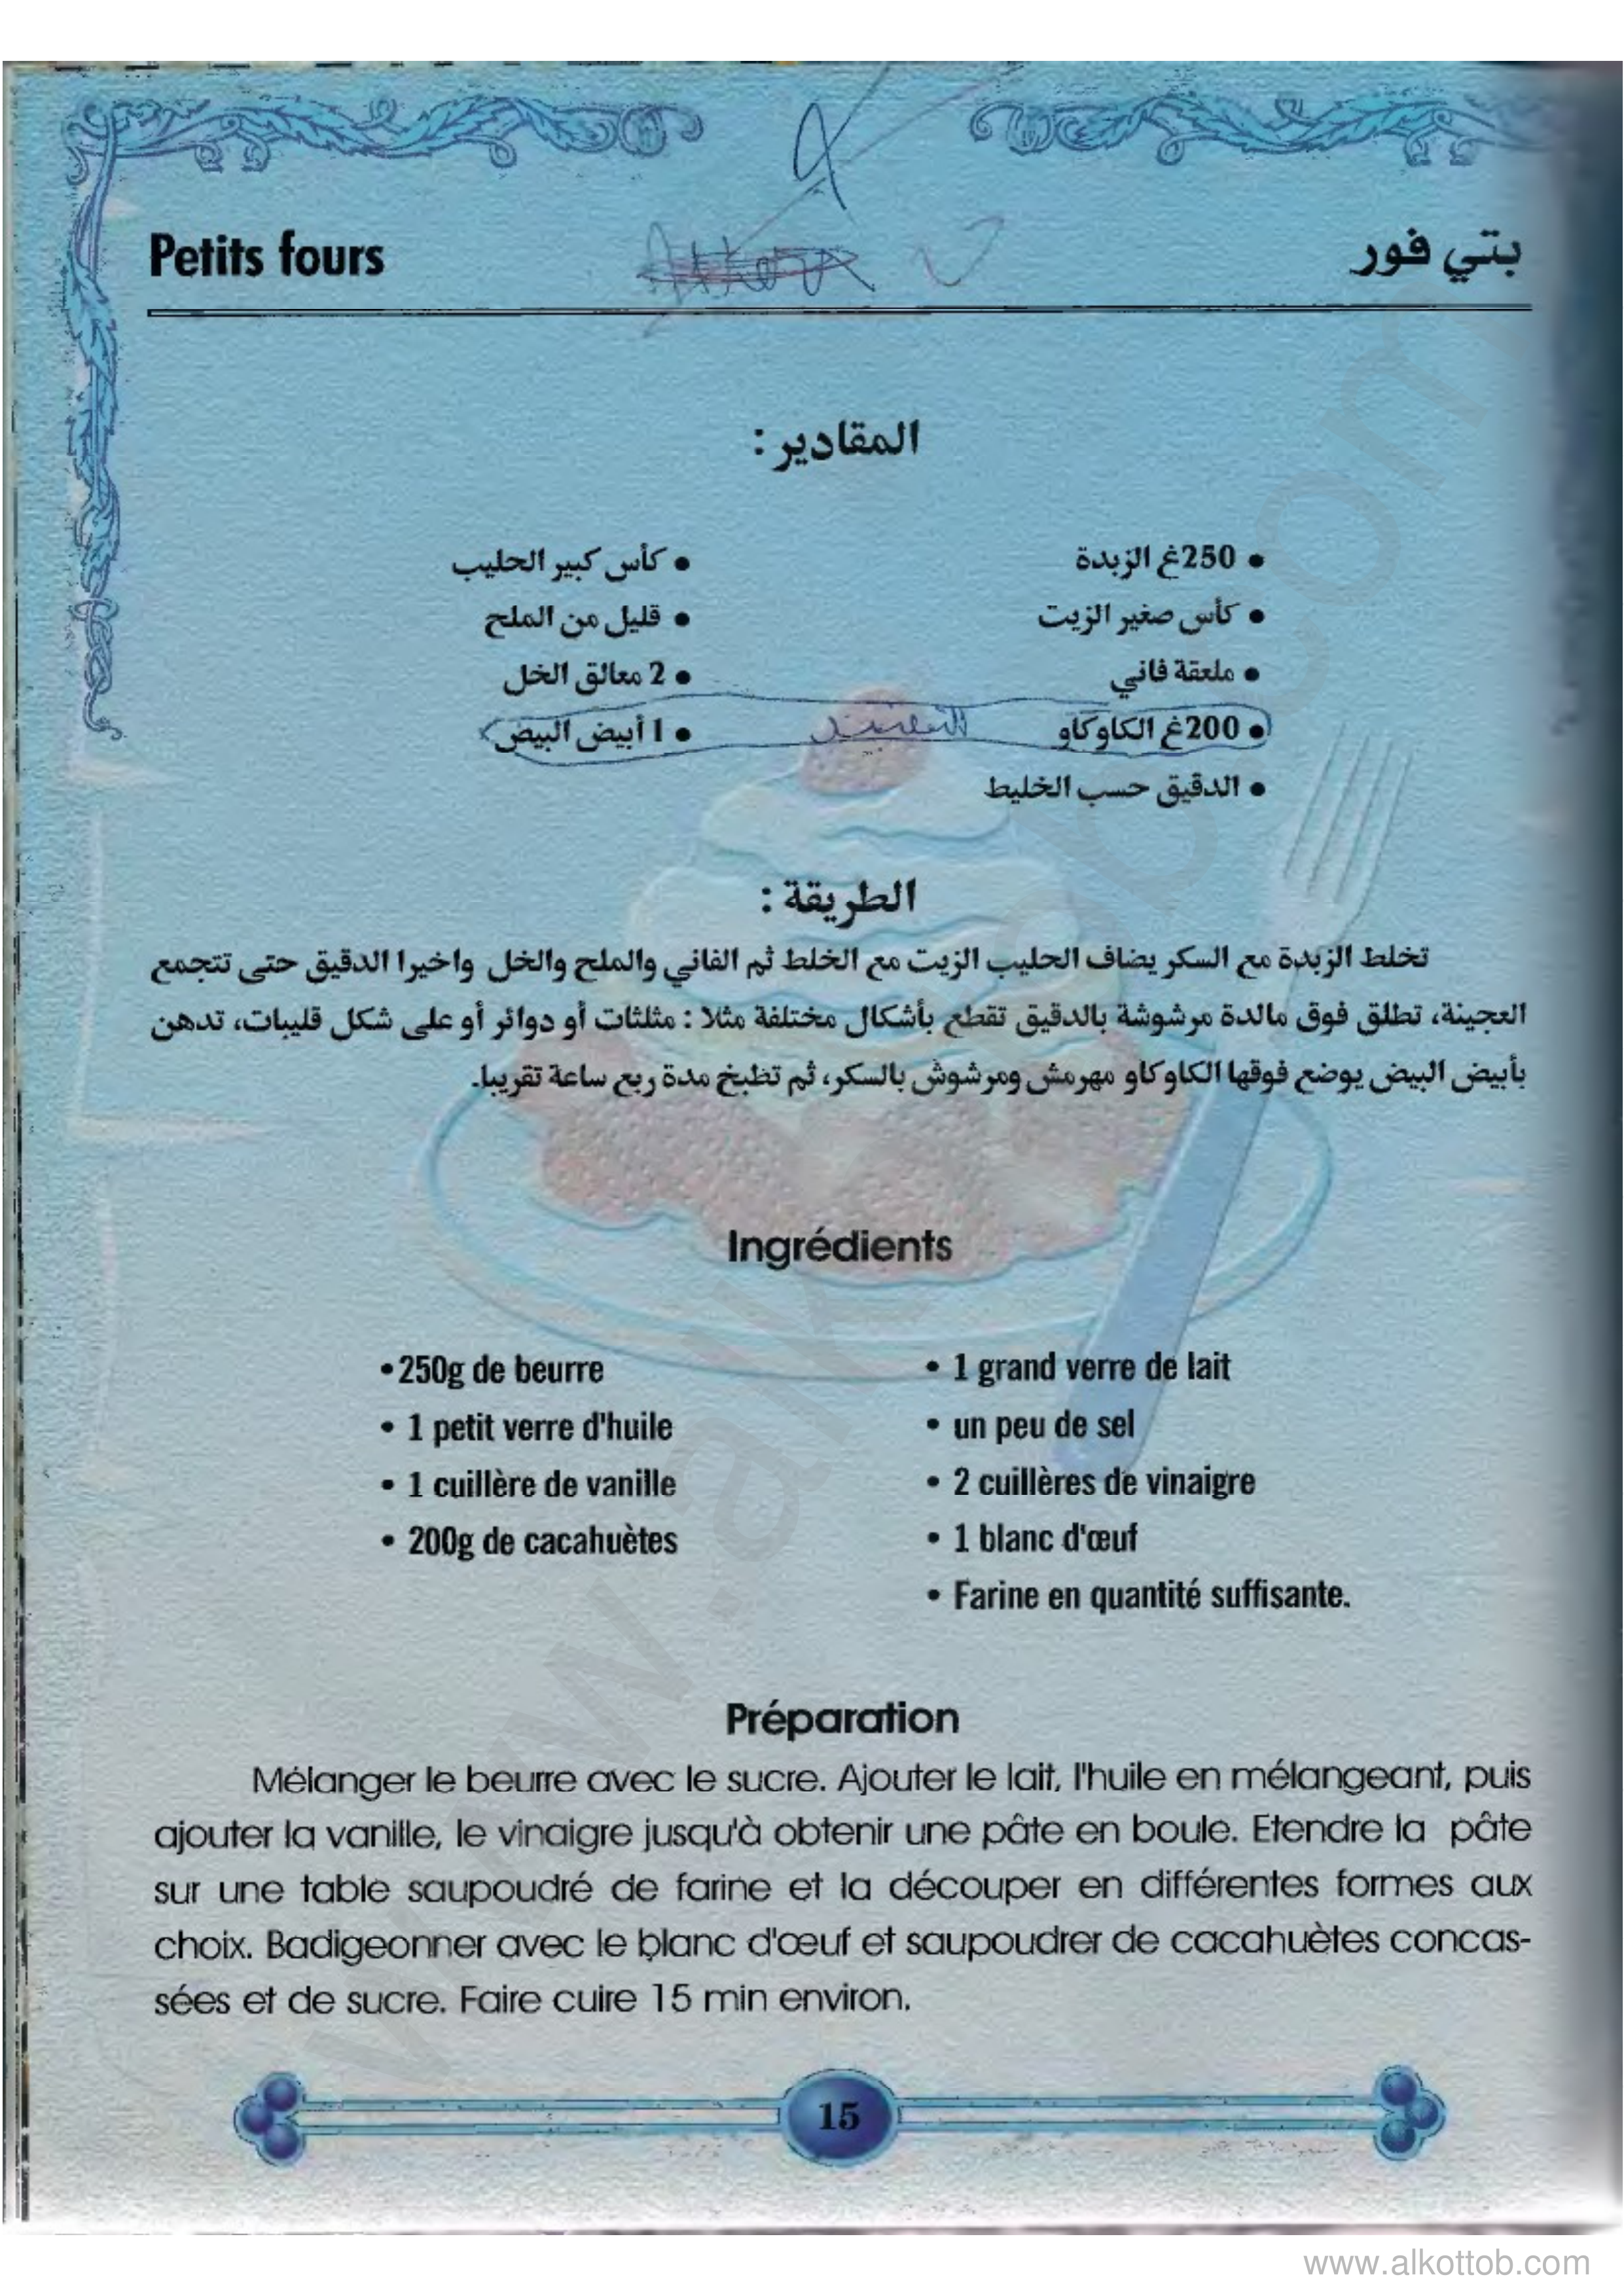 Petits fours
بتي فور
المقادير :
• 250غ الزبدة
• كأس صغير الزيت
• ملعقة فاني
• 200غ الكاوكاو
• الدقيق حسب الخليط
• كأس كبير الحليب
• قليل من الملح
• 2 معالق الخل
• 1 أبيض البيض
الطريقة :
تخلط الزبدة مع السكر يضاف الحليب الزيت مع الخلط ثم الفاني والملح والخل واخيرا الدقيق حتى تتجمع
العجينة، تطلق فوق مائدة مرشوشة بالدقيق تقطع بأشكال مختلفة مثلا : مثلثات أو دوائر أو على شكل قليبات، تدهن
بأبيض البيض يوضع فوقها الكاوكاو مهرمش ومرشوش بالسكر، ثم تطبخ مدة ربع ساعة تقريبا.
Ingrédients
•250g de beurre
• 1 petit verre d'huile
• 1 cuillère de vanille
• 200g de cacahuètes
• 1 grand verre de lait
• un peu de sel
• 2 cuillères de vinaigre
• 1 blanc d'œuf
• Farine en quantité suffisante.
Préparation
Mélanger le beurre avec le sucre. Ajouter le lait, l'huile en mélangeant, puis
ajouter la vanille, le vinaigre jusqu'à obtenir une pâte en boule. Etendre la pâte
sur une table saupoudré de farine et la découper en différentes formes aux
choix. Badigeonner avec le blanc d'œuf et saupoudrer de cacahuètes concas-
sées et de sucre. Faire cuire 15 min environ.
15
www.alkottob.com